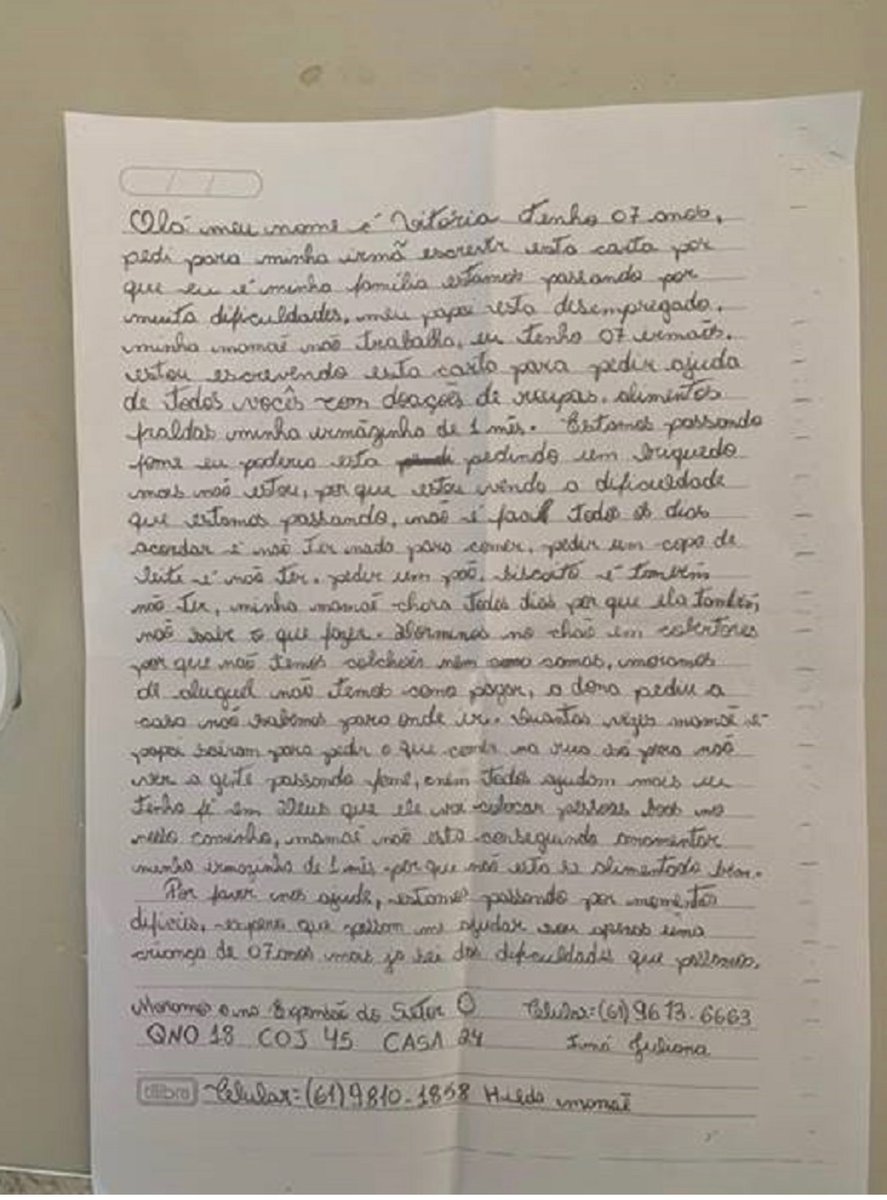 Olá meu nome é Vitória tenho 07 anos,
pedi para minha irmã escrevr esta carta por
que eu é minha família estamos passando por
muuta dificuldades, meu papai esta desempregado,
minha mamaẽ não trabalha, eu tenho 07 irmaõs.
estou escrevendo esta carta para pedir ajuda
de todos vocês com doações de roupas. alimentos
fraldas minha irmãzinha de 1 mês. Estamos passando
fome eu poderia esta pedindo um briquedo
mais não estou, por que estou vendo a dificuldade
que estamos passando, não é facil todos os dias
acordar é não ter nada para comer, pedir um copo de
leite é não ter. pedir um paõ, biscoito é também
não ter, minha mamaẽ chora todos dias por que ela também
naõ sabe o que fazer. Dormimos no chaõ em cobertores
por que não temos colchois nem camas, moramos
de aluguel não temos como pagar, a dona pediu a
casa não sabemos para onde ir. Quantas vezes mamaẽ é
papai sairam para pedir o que comer na rua só para não
ver a gente passando fome, nem todos ajudam mais eu
tenho fé em Deus que ele vai colocar pessoas boas no
nosso caminho, mamaẽ não está conseguindo amamentar
minha irmazinha de 1 mês por que naõ esta se alimentado bem.
Por favor nos ajude, estamos passando por momentos
dificeis, espero que possam me ajudar sou apenas uma
criança de 07 anos mais ja sei das dificuldades que passamos.
Moramos na Expansaõ do Setor O Celular: (61) 9673-6663
QNO 18 COJ 45 CASA 24 Irmã Juliana
tilibra Celular: (61) 9810-1858 Hilda mamaẽ